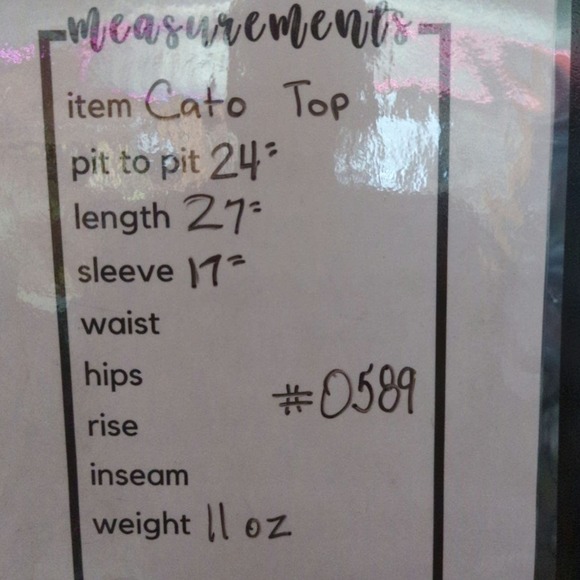 measurements
item Cato Top
pit to pit 24"
length 27"
sleeve 17"
waist
hips
#0589
rise
inseam
weight 11 oz